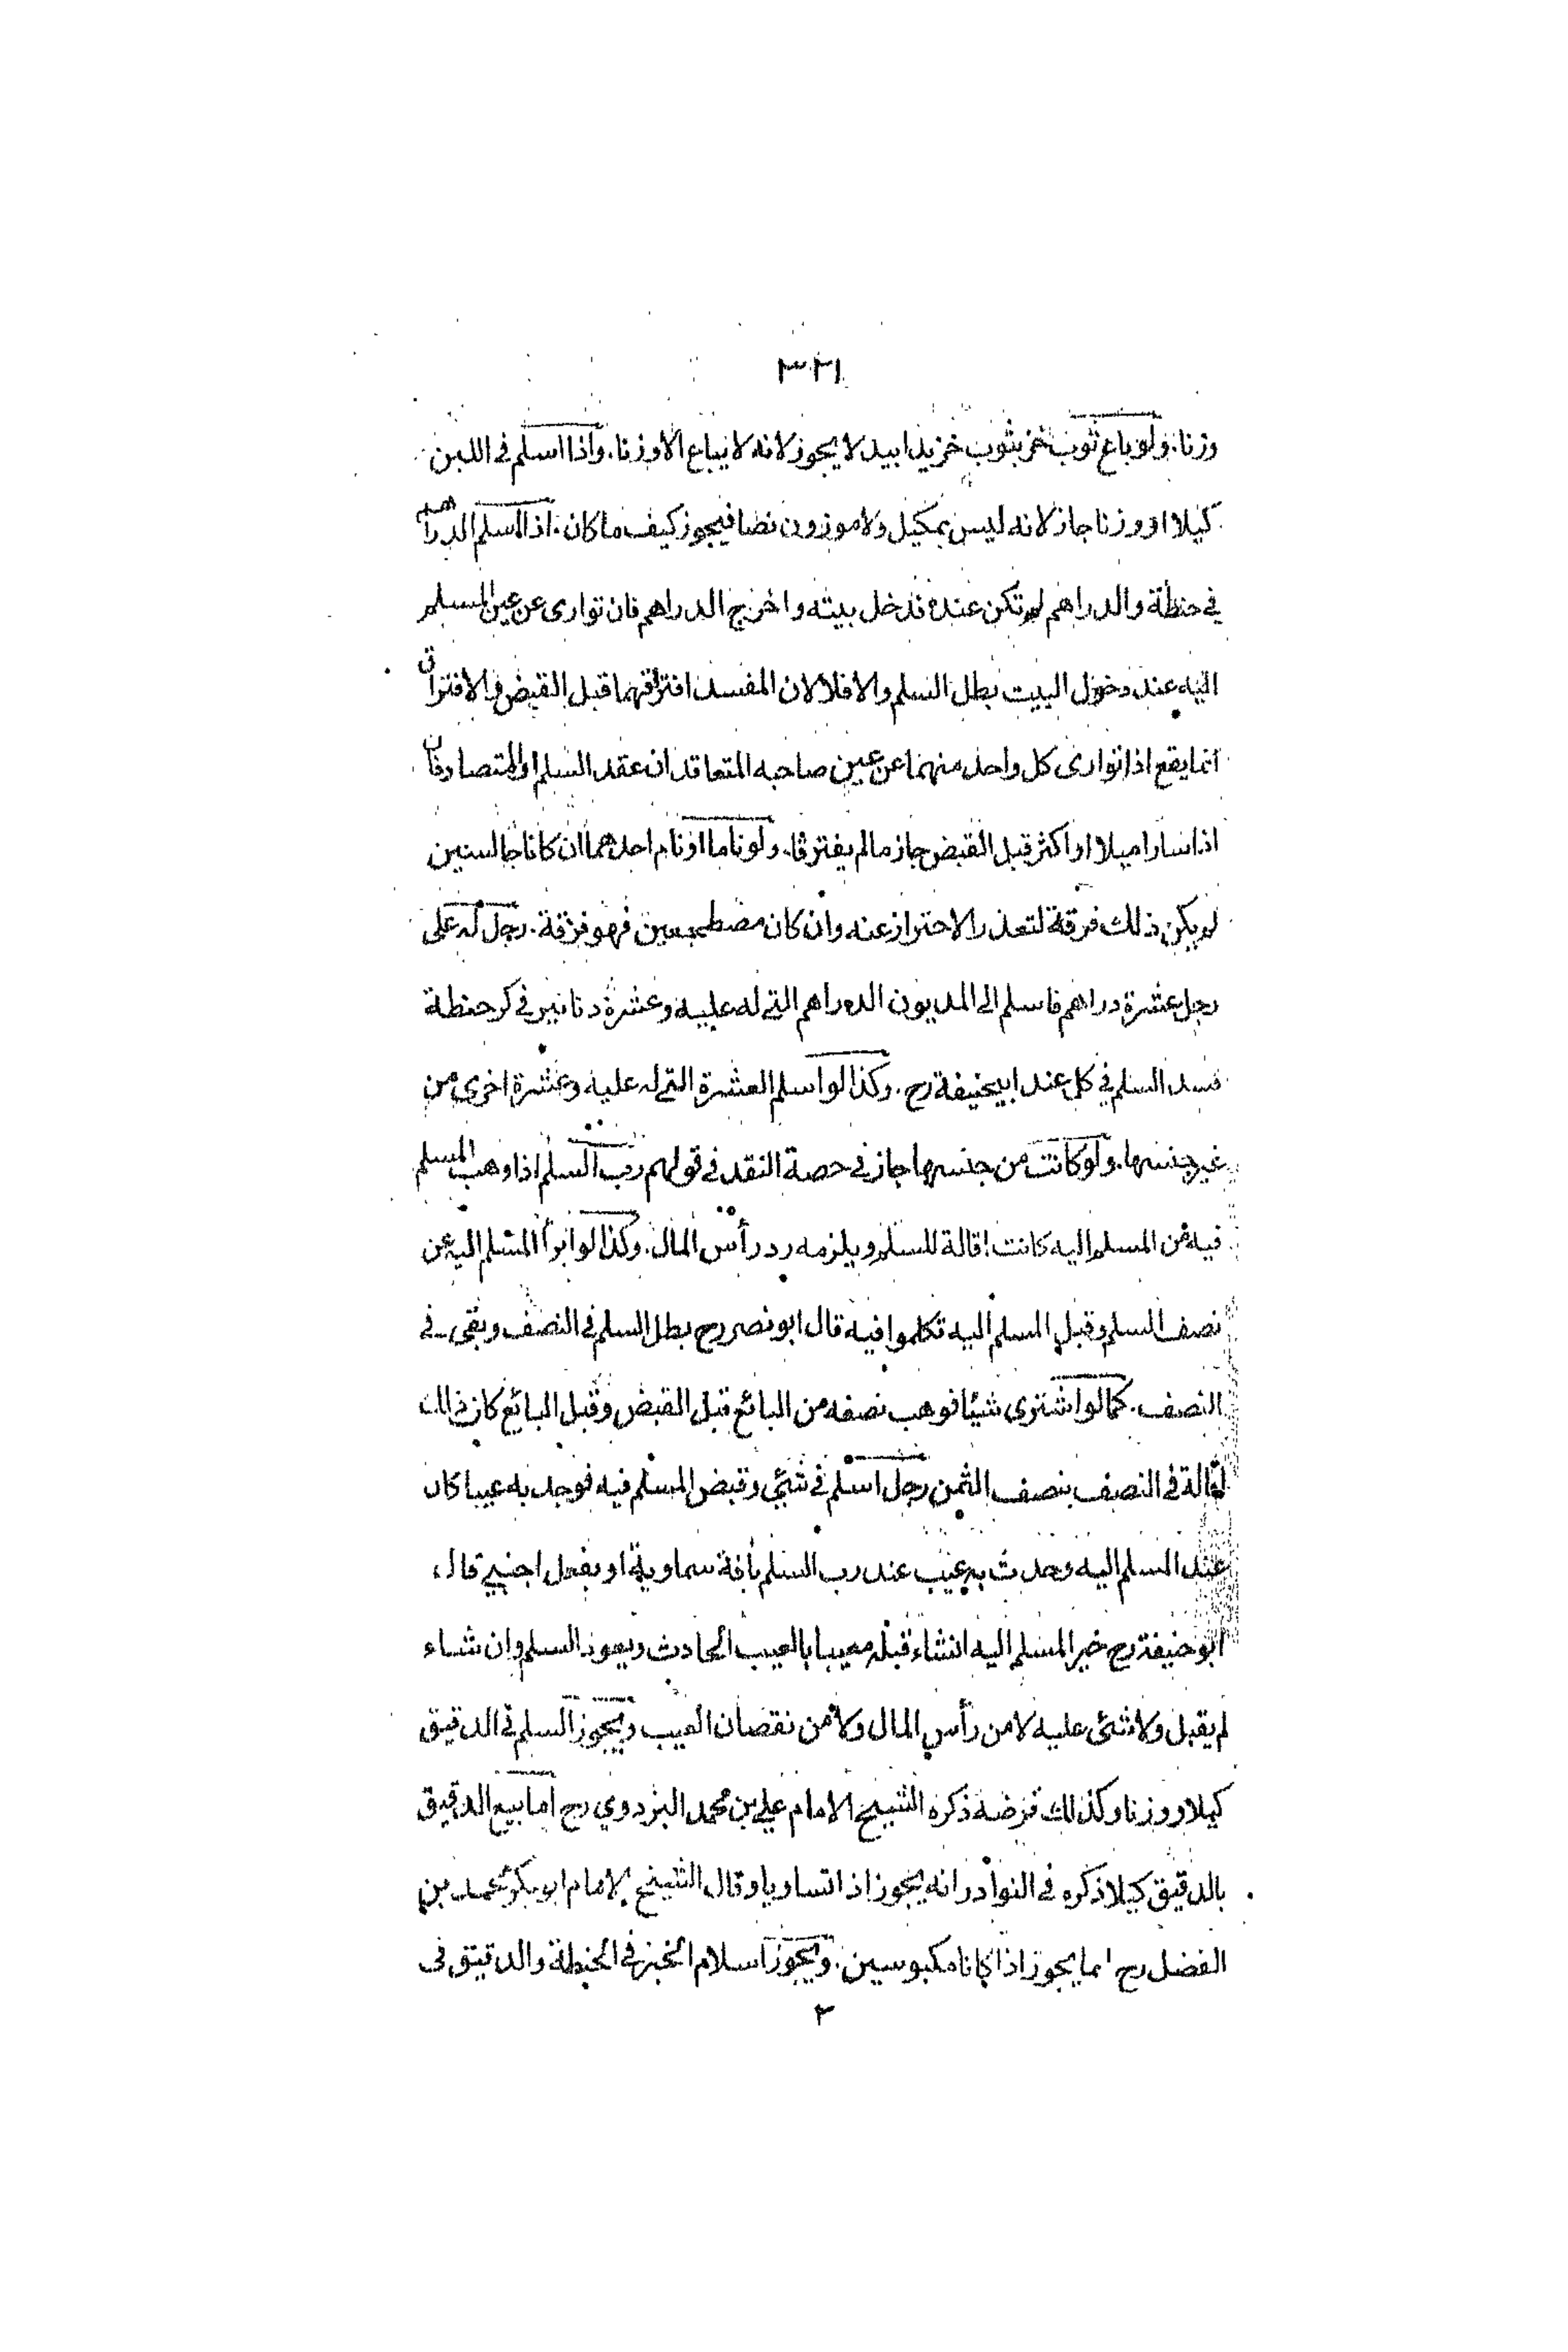 ٣٢١
وزنا. ولو باع ثوب خز بثوب خز يدا بيد لا يجوز لانه لا يباع الا وزنا. واذا اسلم في اللبن
كيلا او وزنا جاز لانه ليس بمكيل ولا موزون نصا فيجوز كيف ما كان. اذا اسلم الدراهم
في حنطة والدراهم لم تكن عنده فدخل بيته واخرج الدراهم فان توارى عن عين المسلم
اليه عند دخول البيت بطل السلم والا فلا لان المفسد افتراقهما قبل القبض والافتراق
انما يقع اذا توارى كل واحد منهما عن عين صاحبه المتعاقدان عقد السلم او المتصارفان
اذا سارا ميلا او اكثر قبل القبض جاز مالم يفترقا. ولو ناما او نام احدهما ان كانا جالسين
لم يكن ذلك فرقة لتعذر الاحتراز عنه وان كان مضطجعين فهو فرقة. رجل له على
رجل عشرة دراهم فاسلم الى المديون الدراهم التي له عليه وعشرة دنانير في كر حنطة
فسد السلم في كل عند ابيحنيفة رح. وكذا لو اسلم العشرة التي له عليه وعشرة اخرى من
غير جنسها. ولو كانت من جنسها جاز في حصة النقد في قولهم رب السلم اذا وهب المسلم
فيه من المسلم اليه كانت اقالة للسلم ويلزمه رد رأس المال. وكذا لو ابرأ المسلم اليه عن
نصف السلم وقبل المسلم اليه تكلموا فيه قال ابو نصر رح بطل السلم في النصف وبقي في
النصف. كما لو اشترى شيئا فوهب نصفه من البائع قبل القبض وقبل البائع كان ذلك
اقالة في النصف بنصف الثمن رجل اسلم في شئ وقبض المسلم فيه فوجد به عيبا كان
عند المسلم اليه وحدث به عيب عند رب السلم بأفة سماوية او بفعل اجنبي قال
ابو حنيفة رح خير المسلم اليه انشاء قبله معيبا بالعيب الحادث ويعود السلم وان شاء
لم يقبل ولا شئ عليه لا من رأس المال ولا من نقصان العيب ويجوز السلم في الدقيق
كيلا ووزنا وكذلك قرضه ذكره الشيخ الامام علي بن محمد البزدوي رح اما بيع الدقيق
بالدقيق كيلا ذكره في النوادر انه يجوز اذا تساويا وقال الشيخ الامام ابو بكر محمد بن
الفضل رح انما يجوز اذا كانا مكبوسين. ويجوز اسلام الخبز في الحنطة والدقيق في